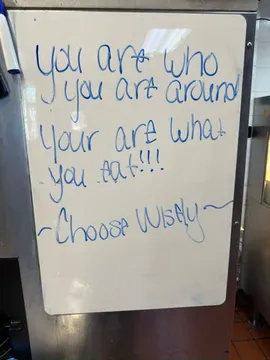 you are who
you are around
Your are what
you eat!!!
~Choose Wisely~